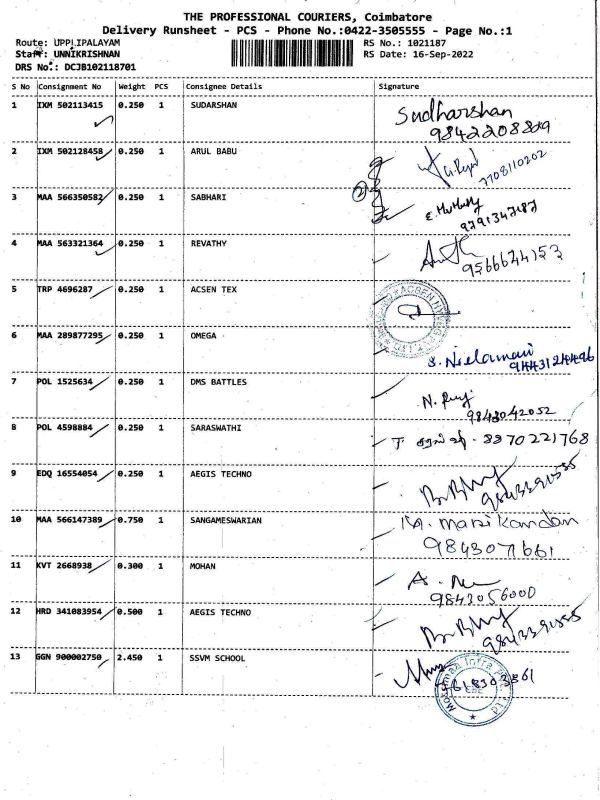 THE PROFESSIONAL COURIERS, Coimbatore
Delivery Runsheet - PCS - Phone No.:0422-3505555 - Page No.:1
Route: UPPLIPALAYAM RS No.: 1021187
Staff: UNNIKRISHNAN RS Date: 16-Sep-2022
DRS No.: DCJB102118701
S No Consignment No Weight PCS Consignee Details Signature
1 IXM 502113415 0.250 1 SUDARSHAN Sudharshan
2 IXM 502128458 0.250 1 ARUL BABU 7708110202
3 MAA 566350582 0.250 1 SABHARI
4 MAA 563321364 0.250 1 REVATHY 9566644153
5 TRP 4696287 0.250 1 ACSEN TEX
6 MAA 289877295 0.250 1 OMEGA S. Neelamani
9443124496
7 POL 1525634 0.250 1 DMS BATTLES
9843042052
8 POL 4598884 0.250 1 SARASWATHI 8870221768
9 EDQ 16554054 0.250 1 AEGIS TECHNO
10 MAA 566147389 0.750 1 SANGAMESWARIAN M. Manikandan
9843071661
11 KVT 2668938 0.300 1 MOHAN
9842056000
12 HRD 341083954 0.500 1 AEGIS TECHNO
13 GGN 900002750 2.450 1 SSVM SCHOOL